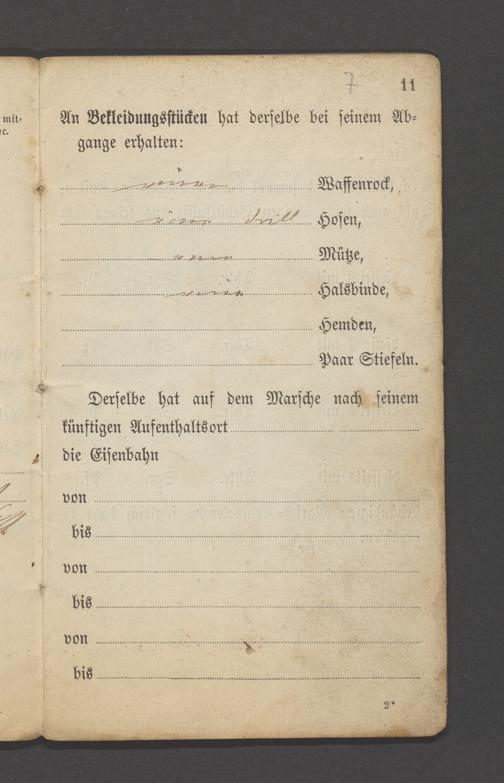 7 11
An Bekleidungsstücken hat derselbe bei seinem Ab-
gange erhalten:
einen Waffenrock,
eine Drill Hosen,
eine Mütze,
eine Halsbinde,
Hemden,
Paar Stiefeln.
Derselbe hat auf dem Marsche nach seinem
künftigen Aufenthaltsort
die Eisenbahn
von
bis
von
bis
von
bis
2*
mit-